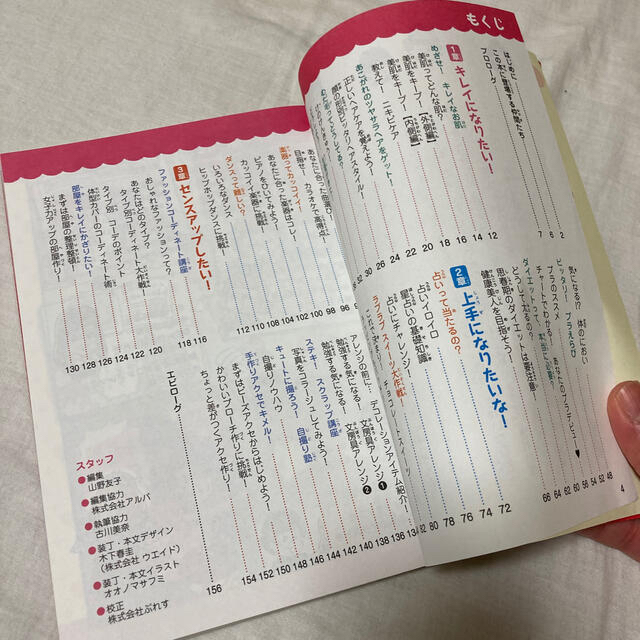 もくじ
はじめに 2
この本に登場する仲間たち 6
プロローグ 7
1章 キレイになりたい！
めざせ！ キレイなお肌 12
美肌ってどんな肌？ 14
美肌をキープ！【外側編】 16
美肌をキープ！【内側編】 18
教えて！ ニキビケア 20
あこがれのツヤサラヘアをゲット 22
正しいヘアケアを覚えよう！ 24
顔の形別ピッタリヘアスタイル！
気になる！ 体のにおい
ピッタリ！ ブラえらび
ブラのススメ
チャートでわかる！ あなたのブラデビュー♥
ダイエットって、本当に必要？
どうして太るの？
思春期のダイエットは要注意！
健康美人を目指そう！
48
52
54
56
60
62
64
66
2章 上手になりたいな！
占いって当たるの？ 72
占いイロイロ 74
星占いの基礎知識 76
占いにチャレンジ！ 78
ラブラブ スイーツ大作戦！ 80
4
楽器ってカッコイイ！
あなたに合った曲選び！
目指せ！ カラオケで高得点！
あなたに合った楽器はコレ！
ピアノをひいてみよう！
カッコイイ楽器に挑戦！
ダンスって難しい？
いろいろなダンス
ヒップホップダンスに挑戦！
96
98
100
102
104
108
110
112
3章 センスアップしたい！
ファッションコーディネート講座
おしゃれなファッションって？
あなたはどのタイプ？
タイプ別 コーディネート大作戦！
タイプ別 コーデのポイント
体型カバーのコーディネート術
部屋をキレイにかざりたい！
まずは部屋の整理整頓！
女子力アップの部屋作り！
116
118
120
122
124
126
128
130
デコレーションアイテム紹介
アレンジの前に！
勉強する気になる！ 文房具アレンジ❶
勉強する気になる！ 文房具アレンジ❷
ステキ！ スクラップ講座
写真をコラージュしてみよう！
キュートに撮ろう！ 自撮り塾
自撮りノウハウ
手作りアクセでキメル！
まずはビーズアクセからはじめよう！
かわいいブローチ作りに挑戦！
ちょっと差がつくアクセ作り！
134
136
138
140
142
144
146
148
150
152
154
エピローグ 156
スタッフ
●編集
山野友子
●編集協力
株式会社アルバ
●執筆協力
古川美奈
●装丁・本文デザイン
木下春圭
（株式会社 ウエイド）
●装丁・本文イラスト
オオノマサフミ
●校正
株式会社ぷれす